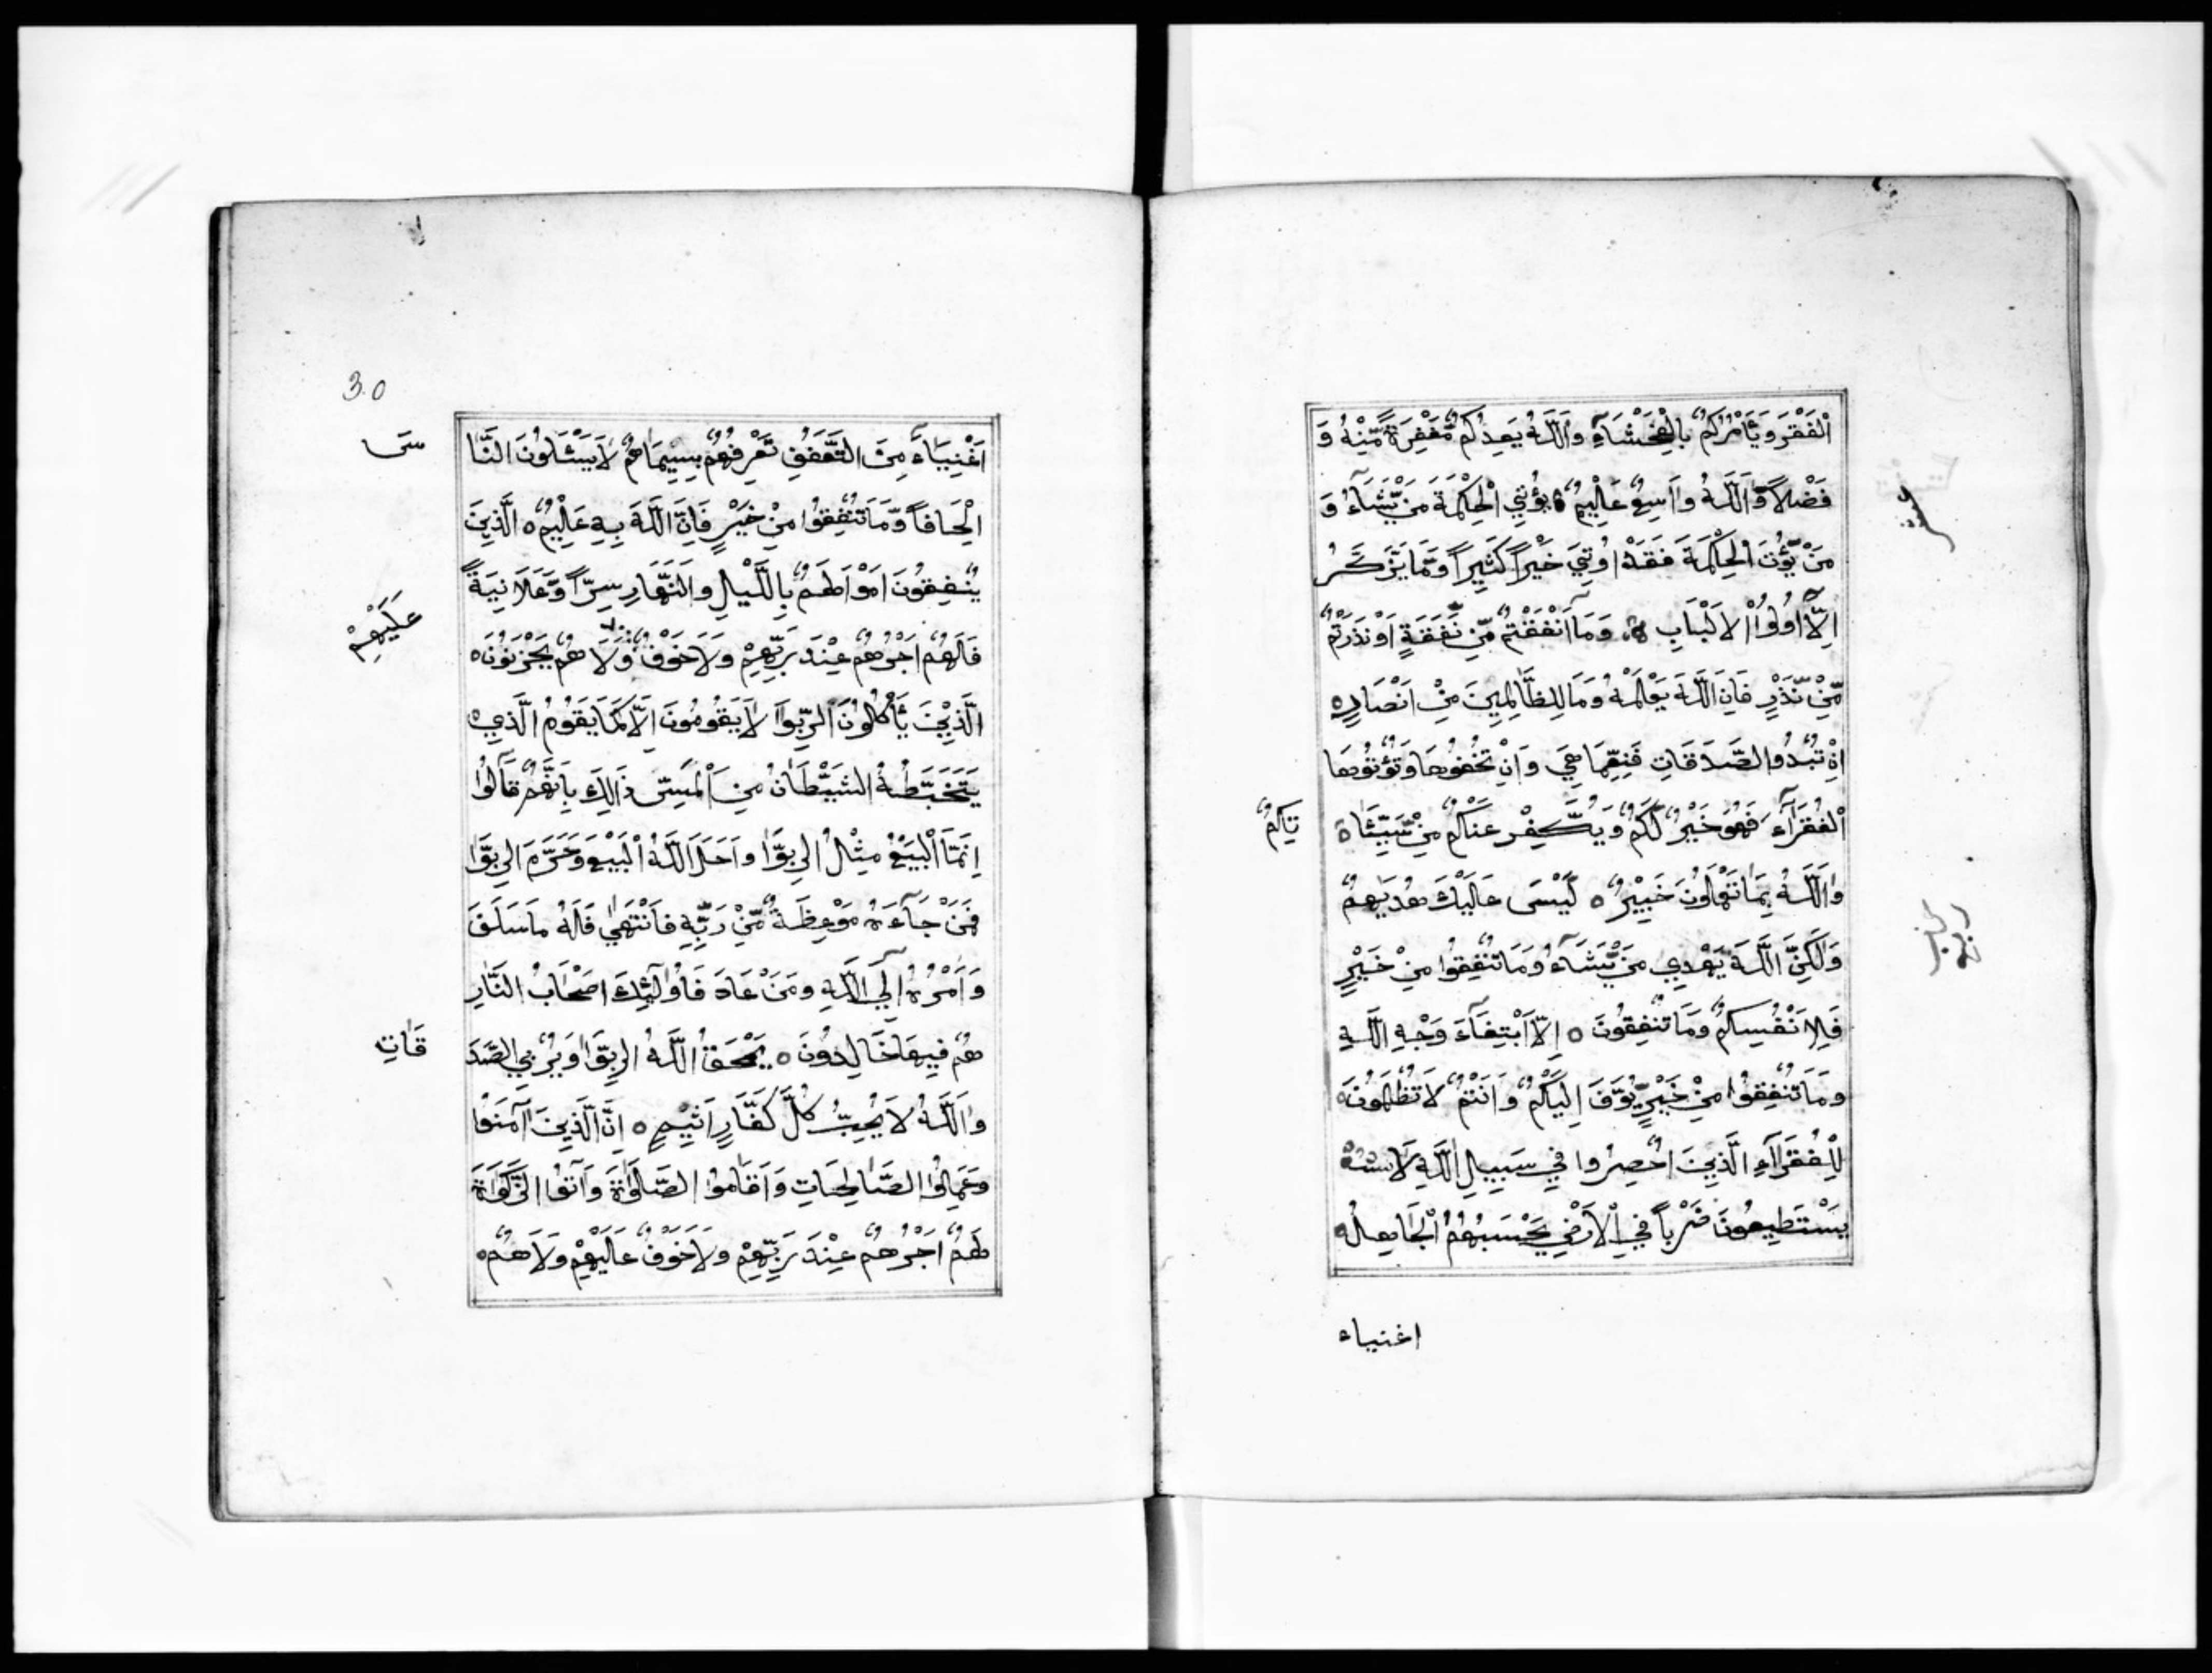 الْفَقْرَ وَيَأْمُرُكُمْ بِالْفَحْشَاءِ وَاللَّهُ يَعِدُكُمْ مَّغْفِرَةً مِّنْهُ وَ
فَضْلاً وَّاللَّهُ وَاسِعٌ عَلِيمٌ ه يُؤْتِي الْحِكْمَةَ مَنْ يَّشَآءُ وَ
مَنْ يُّؤْتَ الْحِكْمَةَ فَقَدْ اُوتِيَ خَيْراً كَثِيراً وَمَا يَذَّكَّرُ
اِلَّآ اُولُوا الْاَلْبَابِ ه وَمَآ اَنْفَقْتُمْ مِّنْ نَّفَقَةٍ اَوْ نَذَرْتُمْ
مِّنْ نَّذْرٍ فَاِنَّ اللَّهَ يَعْلَمُهُ وَمَا لِلظَّالِمِينَ مِنْ اَنْصَارٍ ه
اِنْ تُبْدُوا الصَّدَقَاتِ فَنِعِمَّا هِيَ وَاِنْ تُخْفُوهَا وَتُؤْتُوهَا
الْفُقَرَآءَ فَهُوَ خَيْرٌ لَّكُمْ وَيُكَفِّرُ عَنْكُمْ مِّنْ سَيِّئَا ه
تِكُمْ
وَاللَّهُ بِمَا تَعْمَلُونَ خَبِيْرٌ ه لَيْسَ عَلَيْكَ هُدَيٰهُمْ
وَلَكِنَّ اللَّهَ يَهْدِي مَنْ يَّشَآءُ وَمَا تُنْفِقُوا مِنْ خَيْرٍ
فَلِاَنْفُسِكُمْ وَمَا تُنْفِقُونَ ه اِلَّا ابْتِغَآءَ وَجْهِ اللَّهِ
وَمَا تُنْفِقُوا مِنْ خَيْرٍ يُّوَفَّ اِلَيْكُمْ وَاَنْتُمْ لَا تُظْلَمُونَ ه
لِلْفُقَرَآءِ الَّذِينَ اُحْصِرُوا فِي سَبِيلِ اللَّهِ لَا
يَسْتَطِيعُونَ ضَرْباً فِي الْاَرْضِ يَحْسَبُهُمُ الْجَاهِلُ ه
اغنياء
30
اَغْنِيَآءَ مِنَ التَّعَفُّفِ تَعْرِفُهُمْ بِسِيمَاهُمْ لَا يَسْئَلُونَ النَّا
سَ
اِلْحَافاً وَّمَا تُنْفِقُوا مِنْ خَيْرٍ فَاِنَّ اللَّهَ بِهِ عَلِيْمٌ ه الَّذِينَ
يُنْفِقُونَ اَمْوَالَهُمْ بِالَّيْلِ وَالنَّهَارِ سِرّاً وَّعَلَانِيَةً
فَلَهُمْ اَجْرُهُمْ عِنْدَ رَبِّهِمْ وَلَا خَوْفٌ وَلَا هُمْ يَحْزَنُونَ ه
عَلَيْهِمْ
الَّذِيْنَ يَأْكُلُونَ الرِّبٰوا لَا يَقُومُونَ اِلَّا كَمَا يَقُومُ الَّذِي ه
يَتَخَبَّطُهُ الشَّيْطَانُ مِنَ الْمَسِّ ذَالِكَ بِاَنَّهُمْ قَالُوا
اِنَّمَا الْبَيْعُ مِثْلُ الرِّبٰوا وَاَحَلَّ اللَّهُ الْبَيْعَ وَحَرَّمَ الرِّبٰوا
فَمَنْ جَآءَهُ مَوْعِظَةٌ مِّنْ رَبِّهِ فَانْتَهٰى فَلَهُ مَا سَلَفَ
وَاَمْرُهُ اِلَى اللَّهِ وَمَنْ عَادَ فَاُولٰٓئِكَ اَصْحَابُ النَّارِ
هُمْ فِيهَا خَالِدُونَ ه يَمْحَقُ اللَّهُ الرِّبٰوا وَيُرْبِي الصَّدَ
قَاتِ
وَاللَّهُ لَا يُحِبُّ كُلَّ كَفَّارٍ اَثِيْمٍ ه اِنَّ الَّذِينَ آمَنُوا
وَعَمِلُوا الصَّالِحَاتِ وَاَقَامُوا الصَّلٰوةَ وَآتَوُا الزَّكٰوةَ
لَهُمْ اَجْرُهُمْ عِنْدَ رَبِّهِمْ وَلَا خَوْفٌ عَلَيْهِمْ وَلَا هُمْ ه